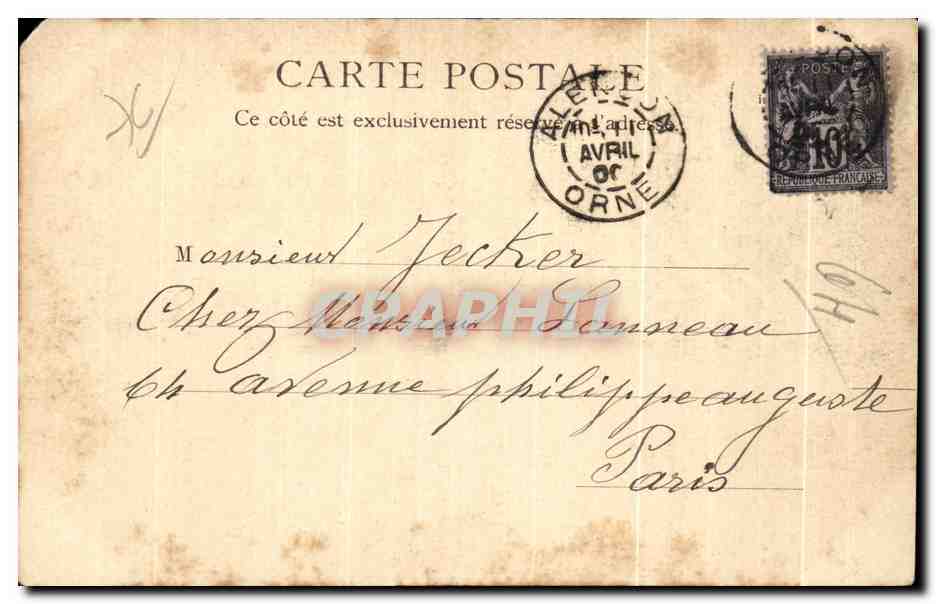 CARTE POSTALE
Ce côté est exclusivement réservé à l'adresse
ALENÇON
11
AVRIL
00
ORNE
POSTE
10
REPUBLIQUE FRANÇAISE
Monsieur Jecker
Chez Monsieur Lanneau
64 avenue philippe auguste
Paris
64
CPAPHIL